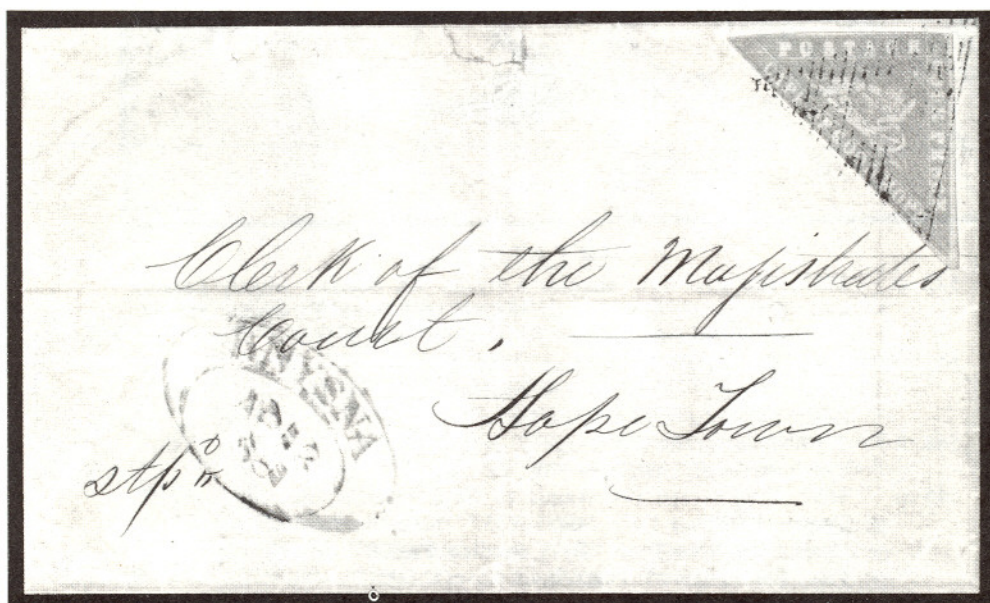 POSTAGE
Clerk of the Magistrates
Court.
Hope Town
KNYSNA
stp d